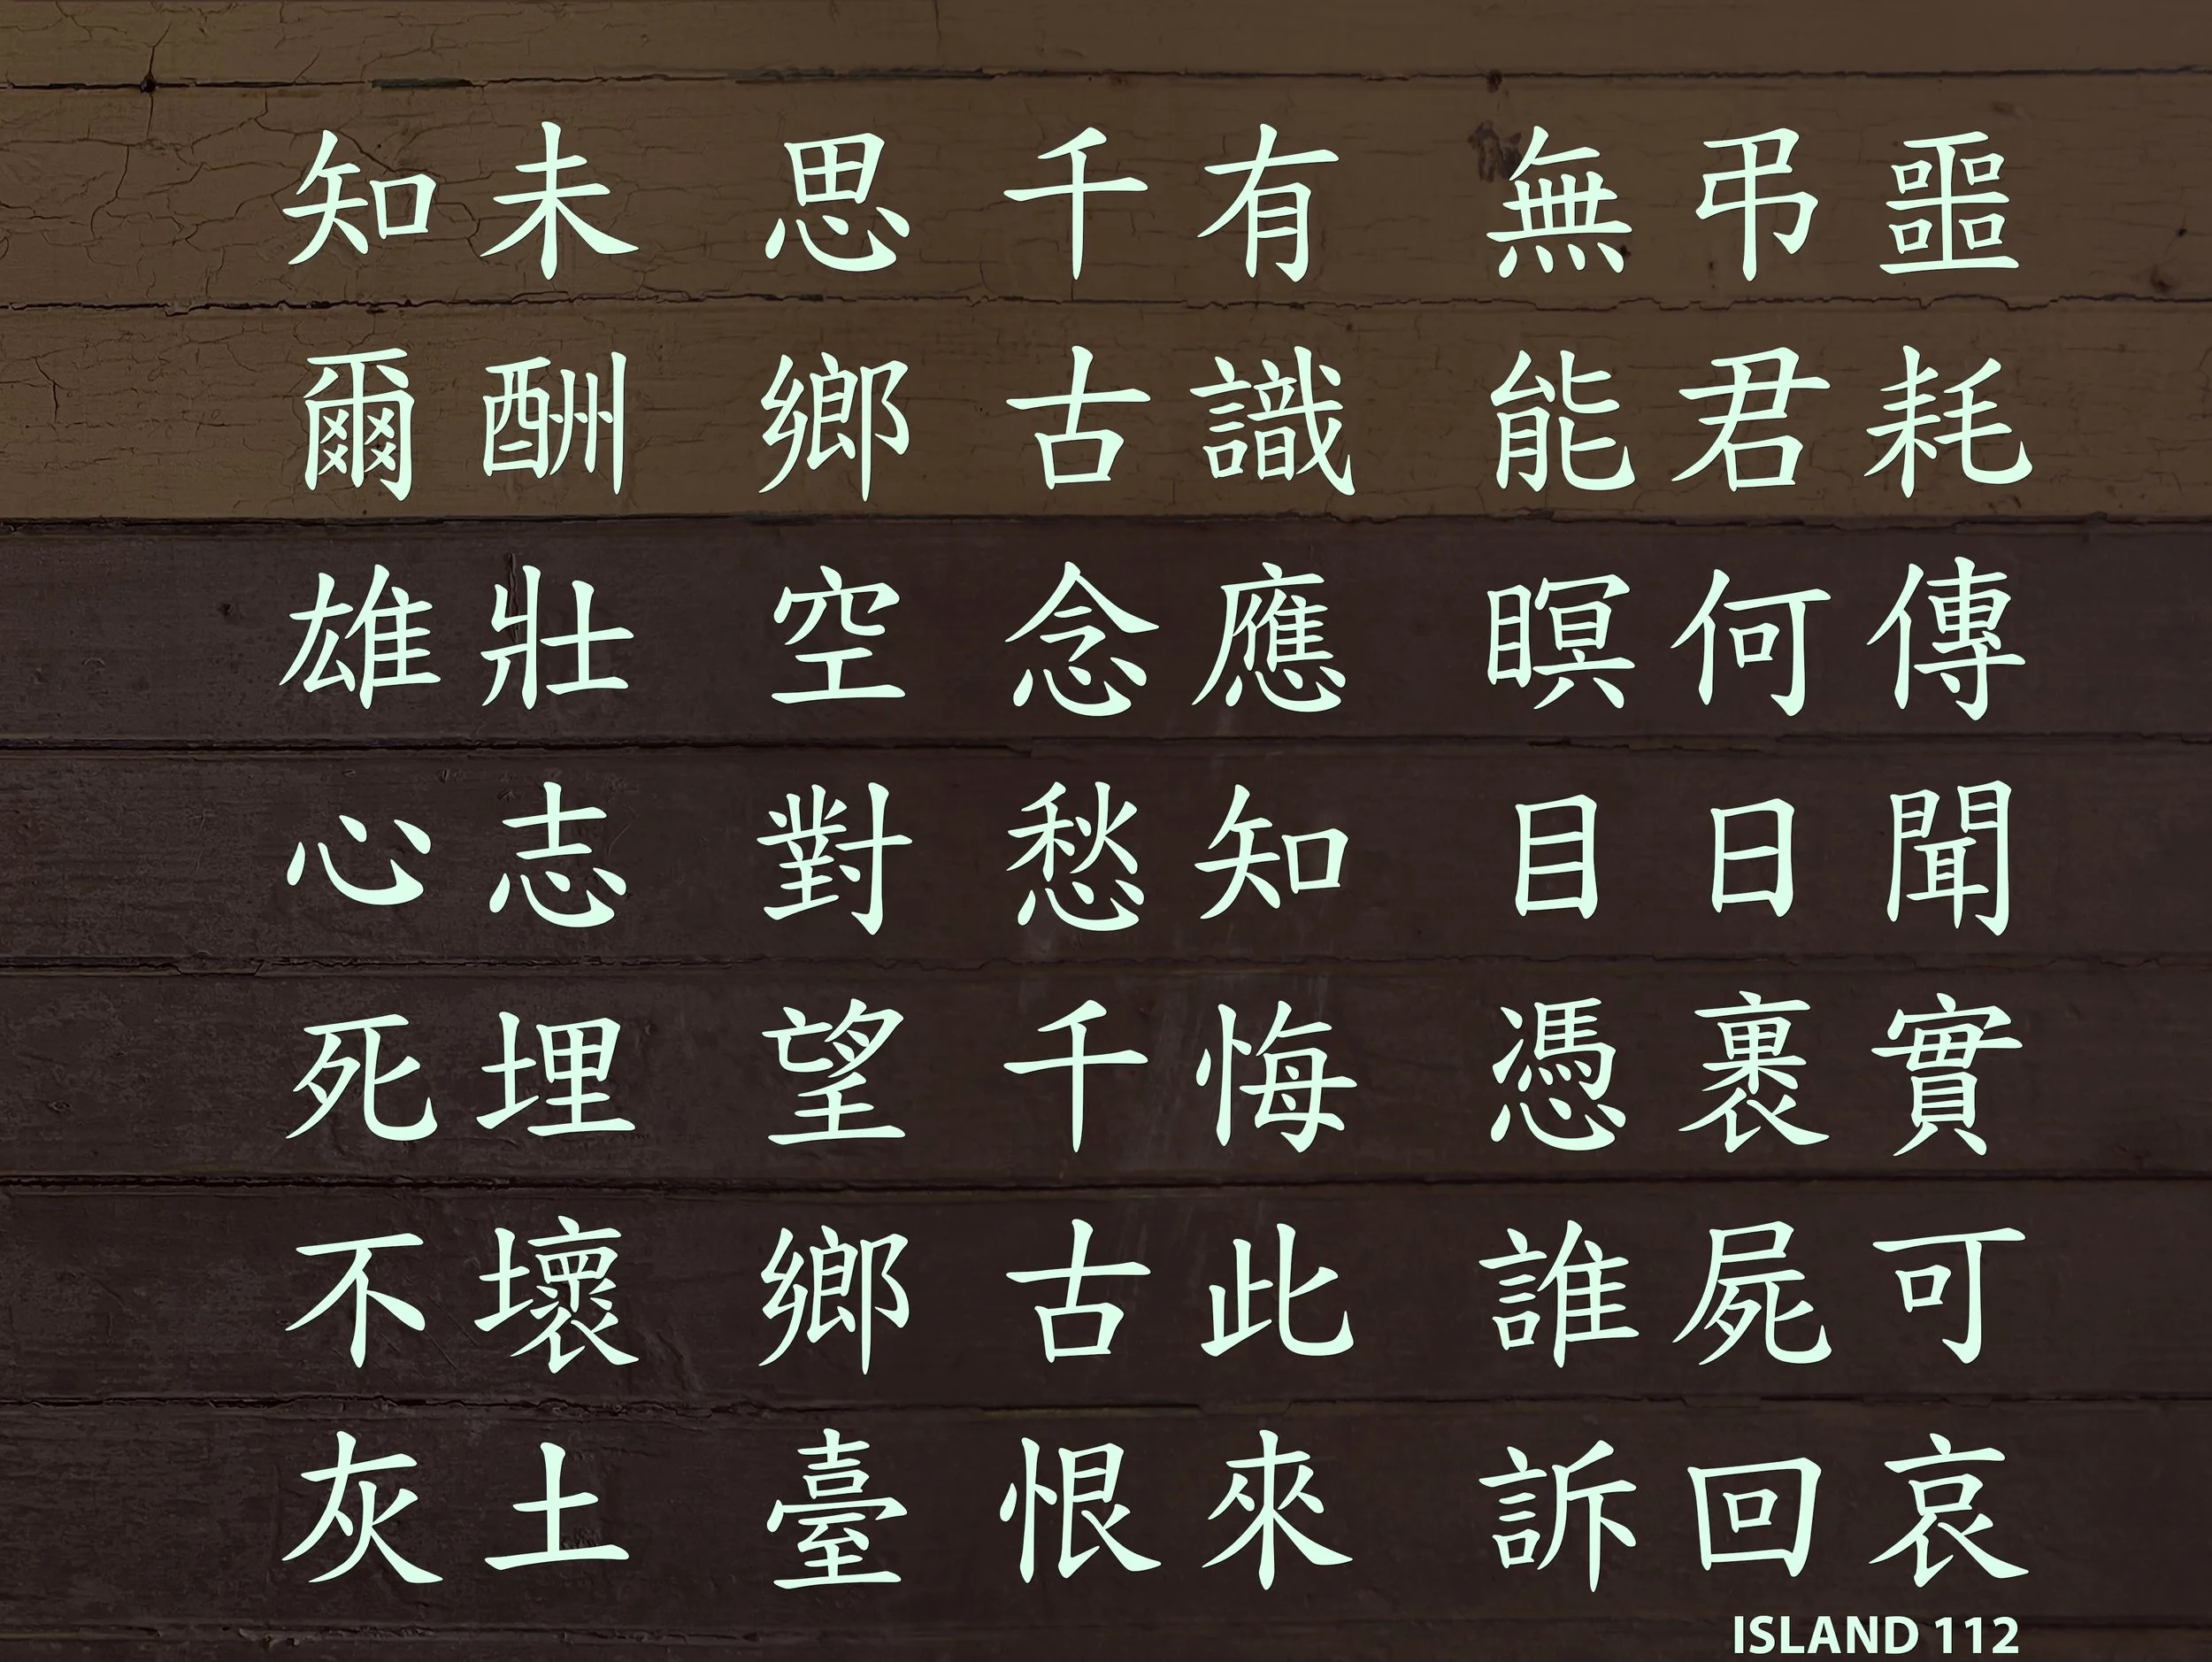 噩耗傳聞實可哀
弔君何日裹屍回
無能瞑目憑誰訴
有識應知悔此來
千古念愁千古恨
思鄉空對望鄉臺
未酬壯志埋壞土
知爾雄心死不灰
ISLAND 112